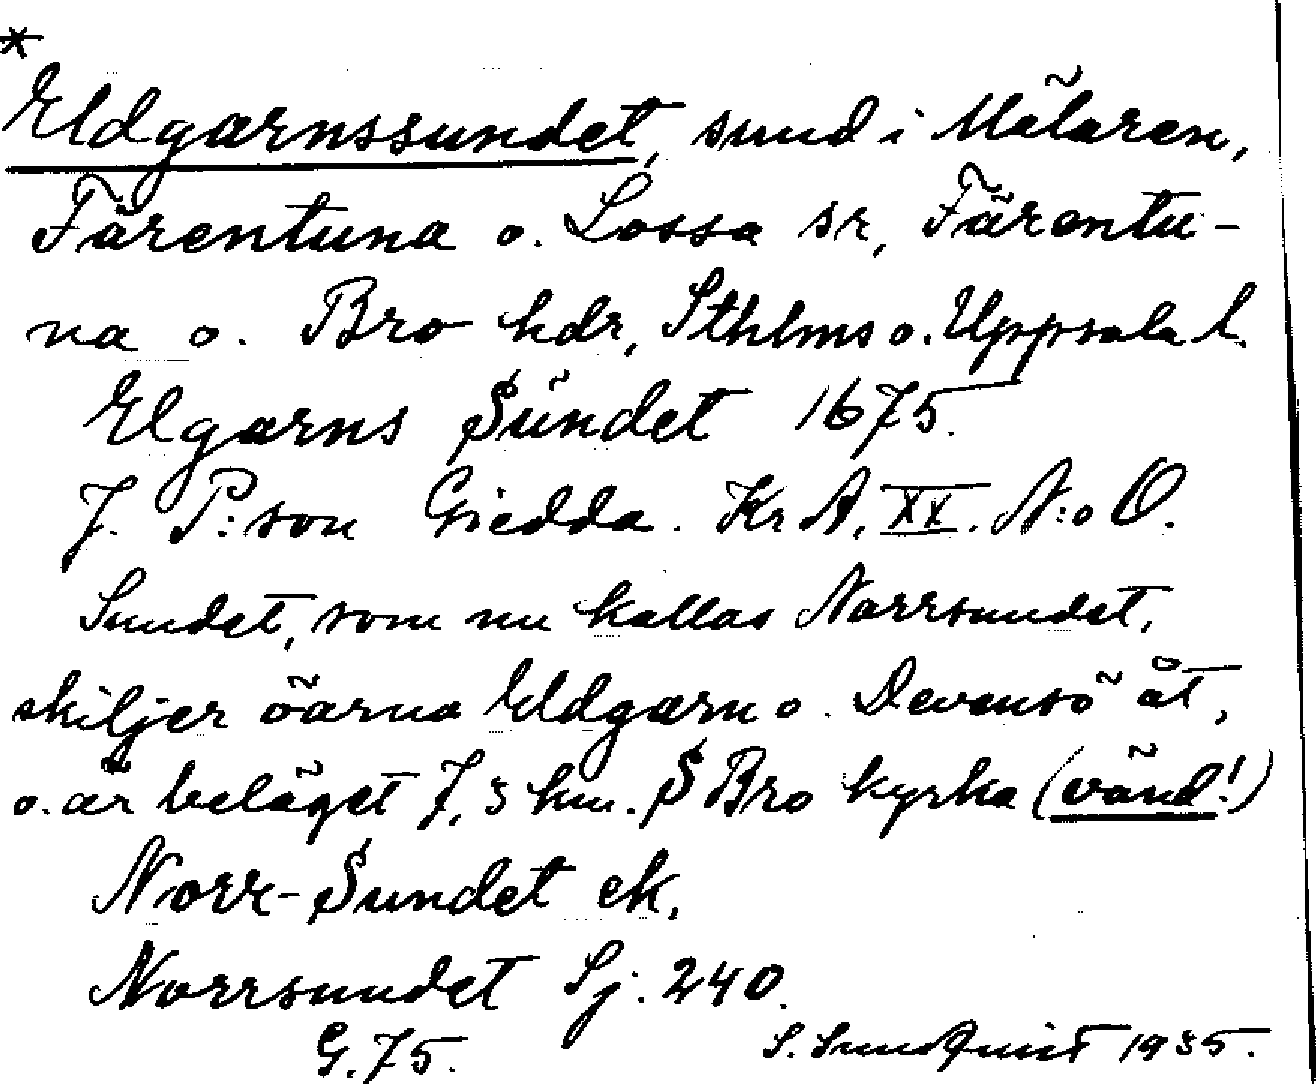 *
Eldgarnssundet, sund i Mälaren,
Färentuna o. Lossa sr, Färentu-
na o. Bro hdr, Sthlms o. Uppsala l.
Elgarns Sundet 1675.
J. P:son Giedda. Kr A. XX. N:o O.
Sundet, som nu kallas Norrsundet,
skiljer öarna Eldgarn o. Devensö åt,
o. är beläget 7,3 km. S Bro kyrka (vänd!)
Norr-Sundet ek.
Norrsundet Sj. 240.
G. 75. S. Sundquist 1935.